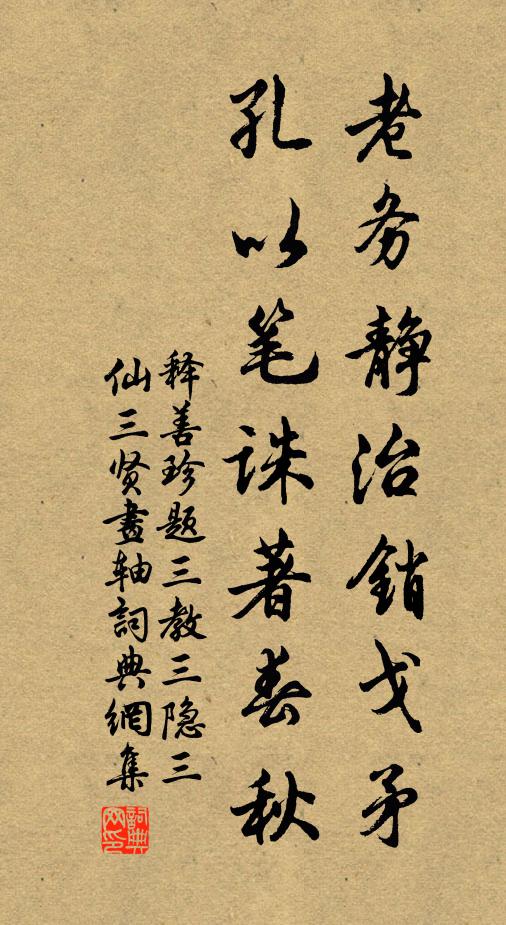 老务静治銷戈矛
孔以笔诛著春秋
释善珍题三教三隐三
仙三贤畫轴詞典網集
詞典网印